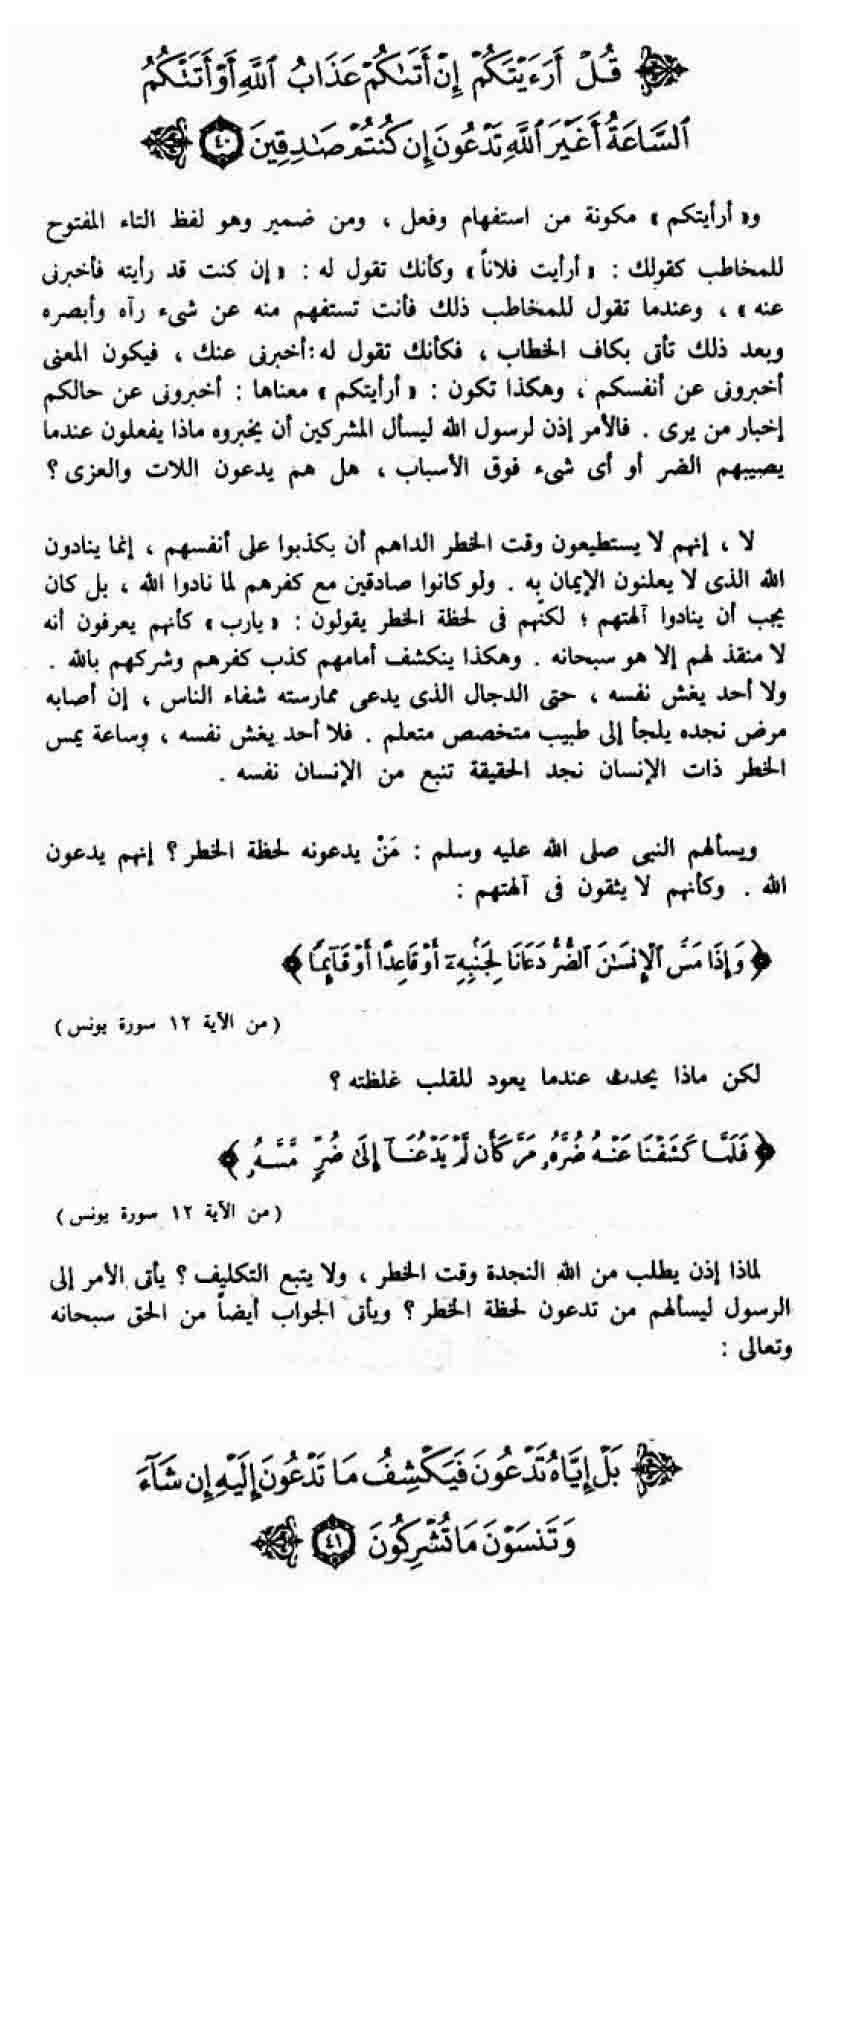 قُلْ أَرَءَيْتَكُمْ إِنْ أَتَىٰكُمْ عَذَابُ ٱللَّهِ أَوْ أَتَتْكُمُ
ٱلسَّاعَةُ أَغَيْرَ ٱللَّهِ تَدْعُونَ إِن كُنتُمْ صَـٰدِقِينَ ٤٠
و« أرأيتكم » مكونة من استفهام وفعل ، ومن ضمير وهو لفظ التاء المفتوح
للمخاطب كقولك : « أرأيت فلاناً » وكأنك تقول له : « إن كنت قد رأيته فأخبرنى
عنه » ، وعندما تقول للمخاطب ذلك فأنت تستفهم منه عن شىء رآه وأبصره
وبعد ذلك تأتى بكاف الخطاب ، فكأنك تقول له : أخبرنى عنك ، فيكون المعنى
أخبرونى عن أنفسكم ، وهكذا تكون : « أرأيتكم » معناها : أخبرونى عن حالكم
إخبار من يرى . فالأمر إذن لرسول الله ليسأل المشركين أن يخبروه ماذا يفعلون عندما
يصيبهم الضر أو أى شىء فوق الأسباب ، هل هم يدعون اللات والعزى ؟
لا ، إنهم لا يستطيعون وقت الخطر الداهم أن يكذبوا على أنفسهم ، إنما ينادون
الله الذى لا يعلنون الإيمان به . ولو كانوا صادقين مع كفرهم لما نادوا الله ، بل كان
يجب أن ينادوا آلهتهم ؛ لكنّهم فى لحظة الخطر يقولون : « يارب » كأنهم يعرفون أنه
لا منقذ لهم إلا هو سبحانه . وهكذا ينكشف أمامهم كذب كفرهم وشركهم بالله .
ولا أحد يغش نفسه ، حتى الدجال الذى يدعى ممارسته شفاء الناس ، إن أصابه
مرض نجده يلجأ إلى طبيب متخصص متعلم . فلا أحد يغش نفسه ، وساعة يمس
الخطر ذات الإنسان نجد الحقيقة تنبع من الإنسان نفسه .
ويسألهم النبى صلى الله عليه وسلم : مَنْ يدعونه لحظة الخطر ؟ إنهم يدعون
الله . وكأنهم لا يثقون فى آلهتهم :
﴿ وَإِذَا مَسَّ ٱلْإِنسَـٰنَ ٱلضُّرُّ دَعَانَا لِجَنۢبِهِۦٓ أَوْ قَاعِدًا أَوْ قَآئِمًا ﴾
( من الآية ١٢ سورة يونس )
لكن ماذا يحدث عندما يعود للقلب غلظته ؟
﴿ فَلَمَّا كَشَفْنَا عَنْهُ ضُرَّهُۥ مَرَّ كَأَن لَّمْ يَدْعُنَآ إِلَىٰ ضُرٍّ مَّسَّهُۥ ﴾
( من الآية ١٢ سورة يونس )
لماذا إذن يطلب من الله النجدة وقت الخطر ، ولا يتبع التكليف ؟ يأتى الأمر إلى
الرسول ليسألهم من تدعون لحظة الخطر ؟ ويأتى الجواب أيضاً من الحق سبحانه
وتعالى :
بَلْ إِيَّاهُ تَدْعُونَ فَيَكْشِفُ مَا تَدْعُونَ إِلَيْهِ إِن شَآءَ
وَتَنسَوْنَ مَا تُشْرِكُونَ ٤١